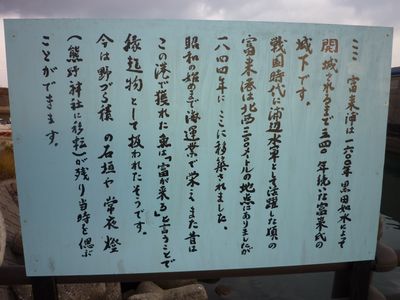 ここ富来浦は一六〇〇年黒田如水によって
開城されるまで三四〇年続いた富来氏の
城下です。
戦国時代に浦辺水軍として活躍した頃の
富来港は北西三〇〇メートルの地点にありましたが
一八四四年にここに移築されました。
昭和の始めまで海運業で栄えまた昔は
この港で獲れた魚は「富が来る」と言うことで
縁起物として扱われたそうです。
今は野づら積の石垣や常夜燈
(熊野神社に移転)が残り当時を偲ぶ
ことができます。